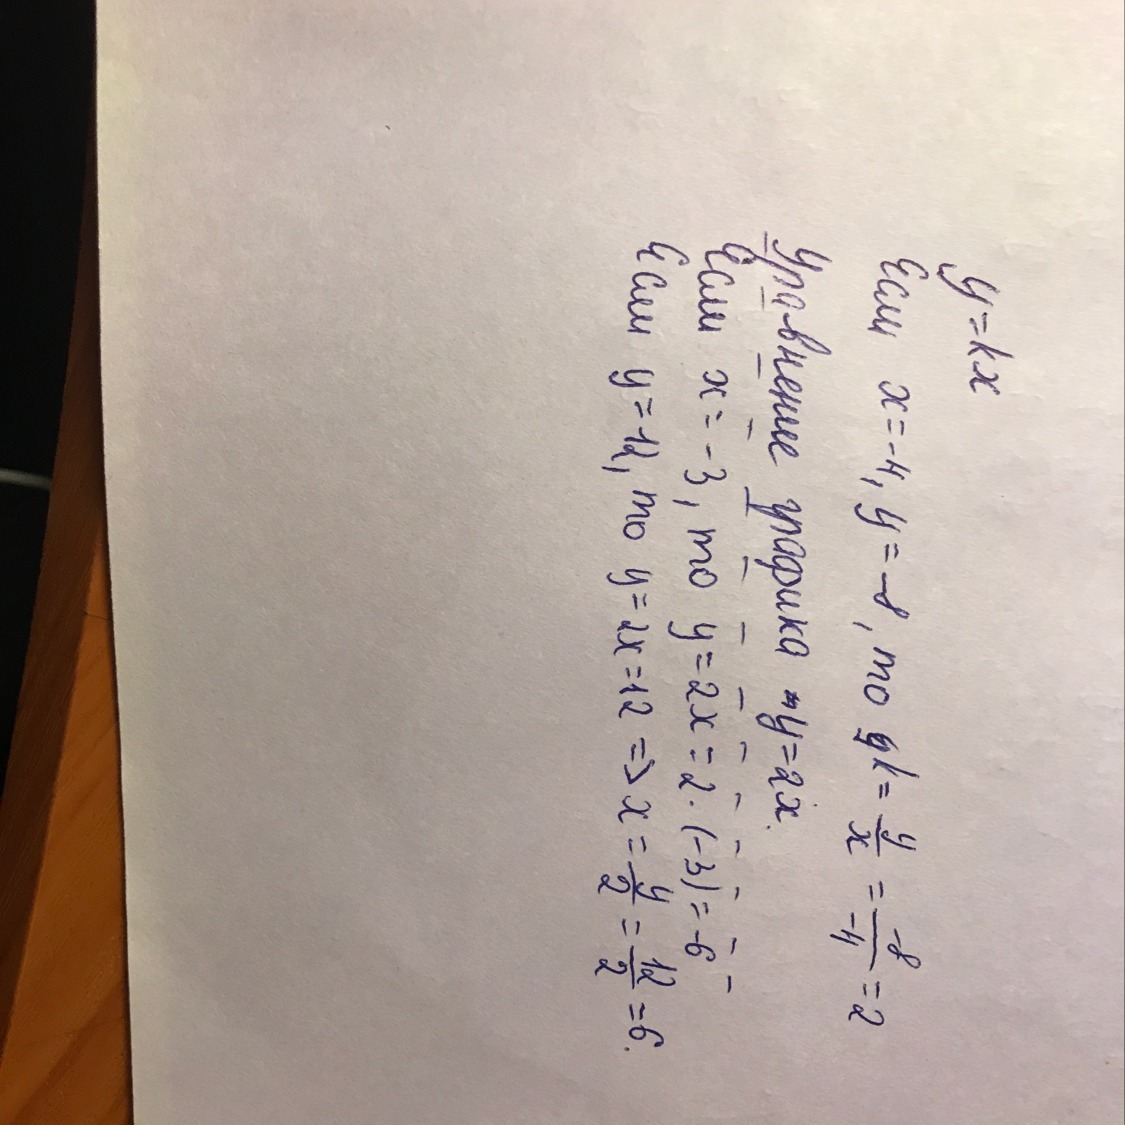 y=kx
Если x=-4, y=-8, то k=y/x=-8/-4=2
Уравнение графика y=2x.
Если x=-3, то y=2x=2·(-3)=-6
Если y=12, то y=2x=12 => x=y/2=12/2=6.